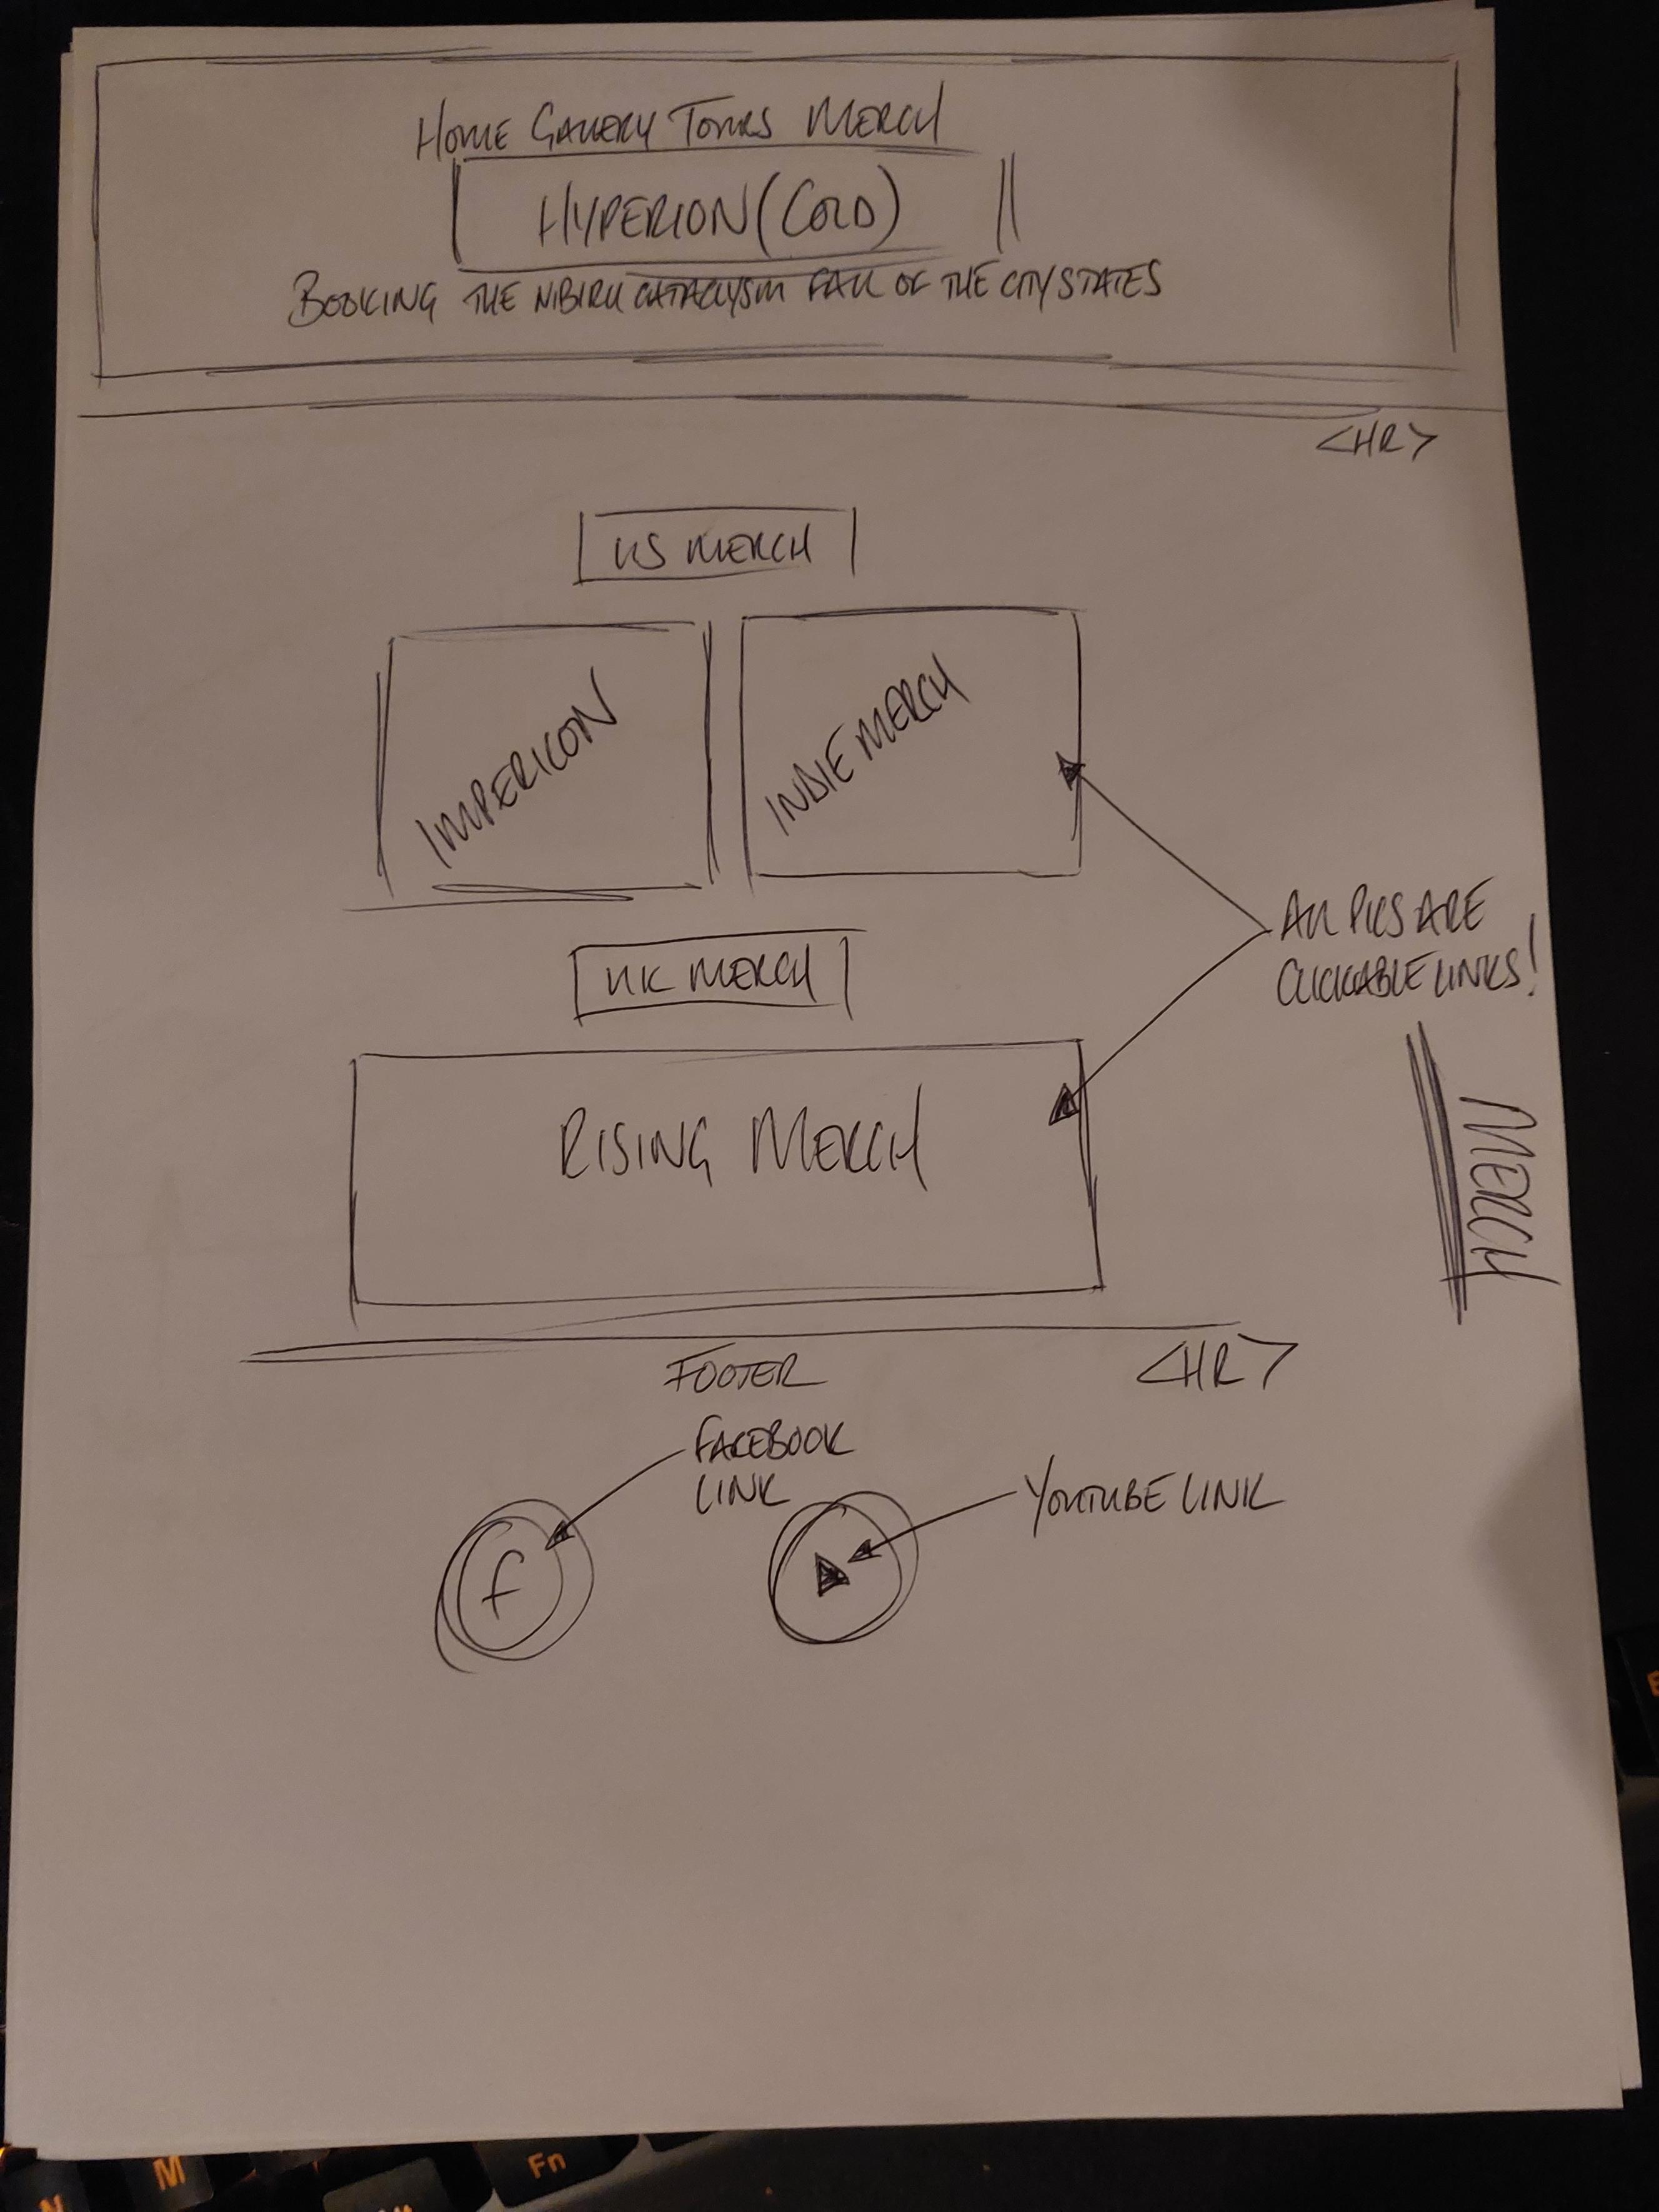 HOME GALLERY TOURS MERCH
HYPERION (COLD)
BOOKING THE NIBIRU CATACLYSM FALL OF THE CITY STATES
<HR>
US MERCH
IMPERICON
INDIE MERCH
ALL PICS ARE
CLICKABLE LINKS!
UK MERCH
RISING MERCH
MERCH
<HR>
FOOTER
FACEBOOK
LINK
YOUTUBE LINK
f
M
Fn
N